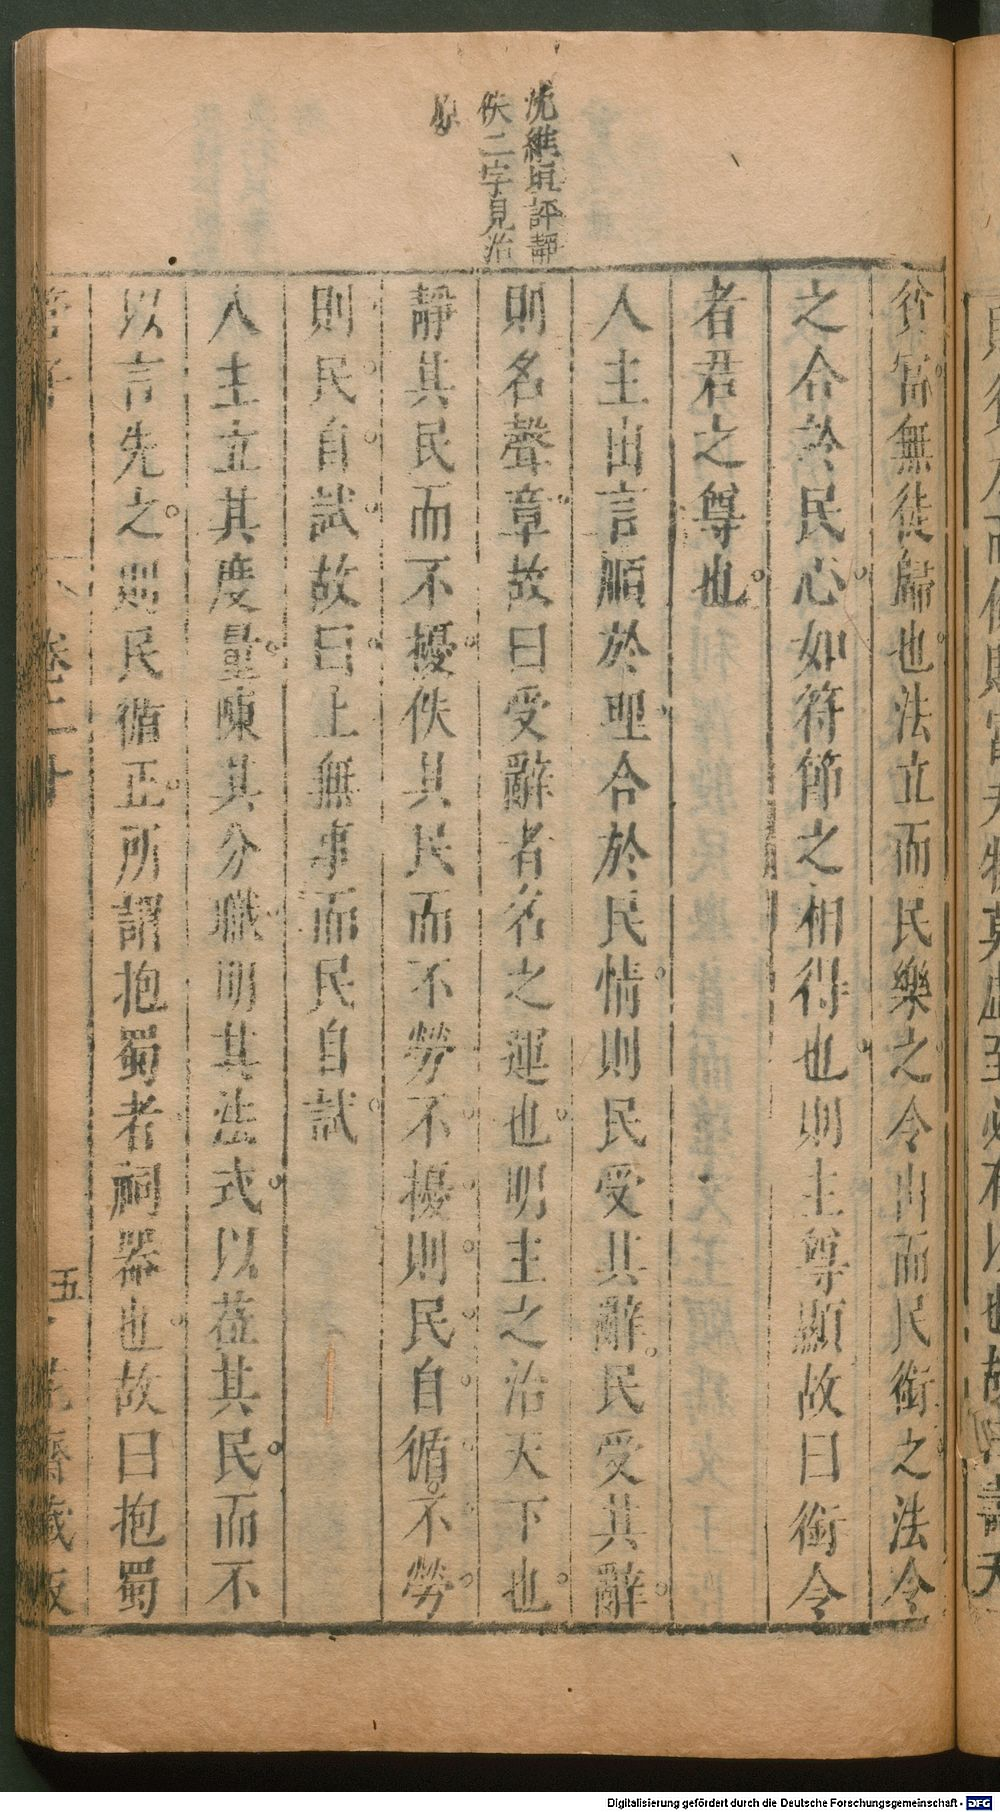 沈維垣評靜
佚二字見治
貧富無徒歸也法立而民樂之令出而民銜之法令
之合於民心如符節之相得也則主尊顯故曰銜令
者君之尊也
人主出言順於理合於民情則民受其辭民受其辭
則名聲章故曰受辭者名之運也明主之治天下也
靜其民而不擾佚其民而不勞不擾則民自循不勞
則民自試故曰上無事而民自試
人主立其度量陳其分職明其法式以莅其民而不
以言先之則民循正所謂抱蜀者祠器也故曰抱蜀
管子
卷二十
五
花齋藏板
Digitalisierung gefördert durch die Deutsche Forschungsgemeinschaft - DFG